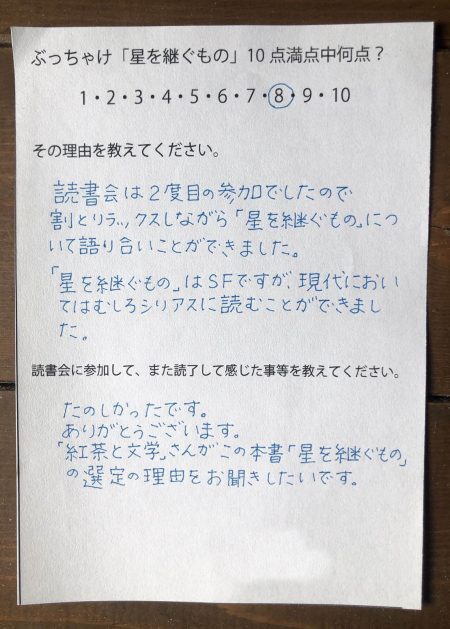 ぶっちゃけ「星を継ぐもの」10点満点中何点？
1・2・3・4・5・6・7・8・9・10
その理由を教えてください。
読書会は2度目の参加でしたので
割とリラックスしながら「星を継ぐもの」につ
いて語り合いことができました。
「星を継ぐもの」はSFですが、現代におい
てはむしろシリアスに読むことができまし
た。
読書会に参加して、また読了して感じた事等を教えてください。
たのしかったです。
ありがとうございます。
「紅茶と文学」さんがこの本書「星を継ぐもの」
の選定の理由をお聞きしたいです。